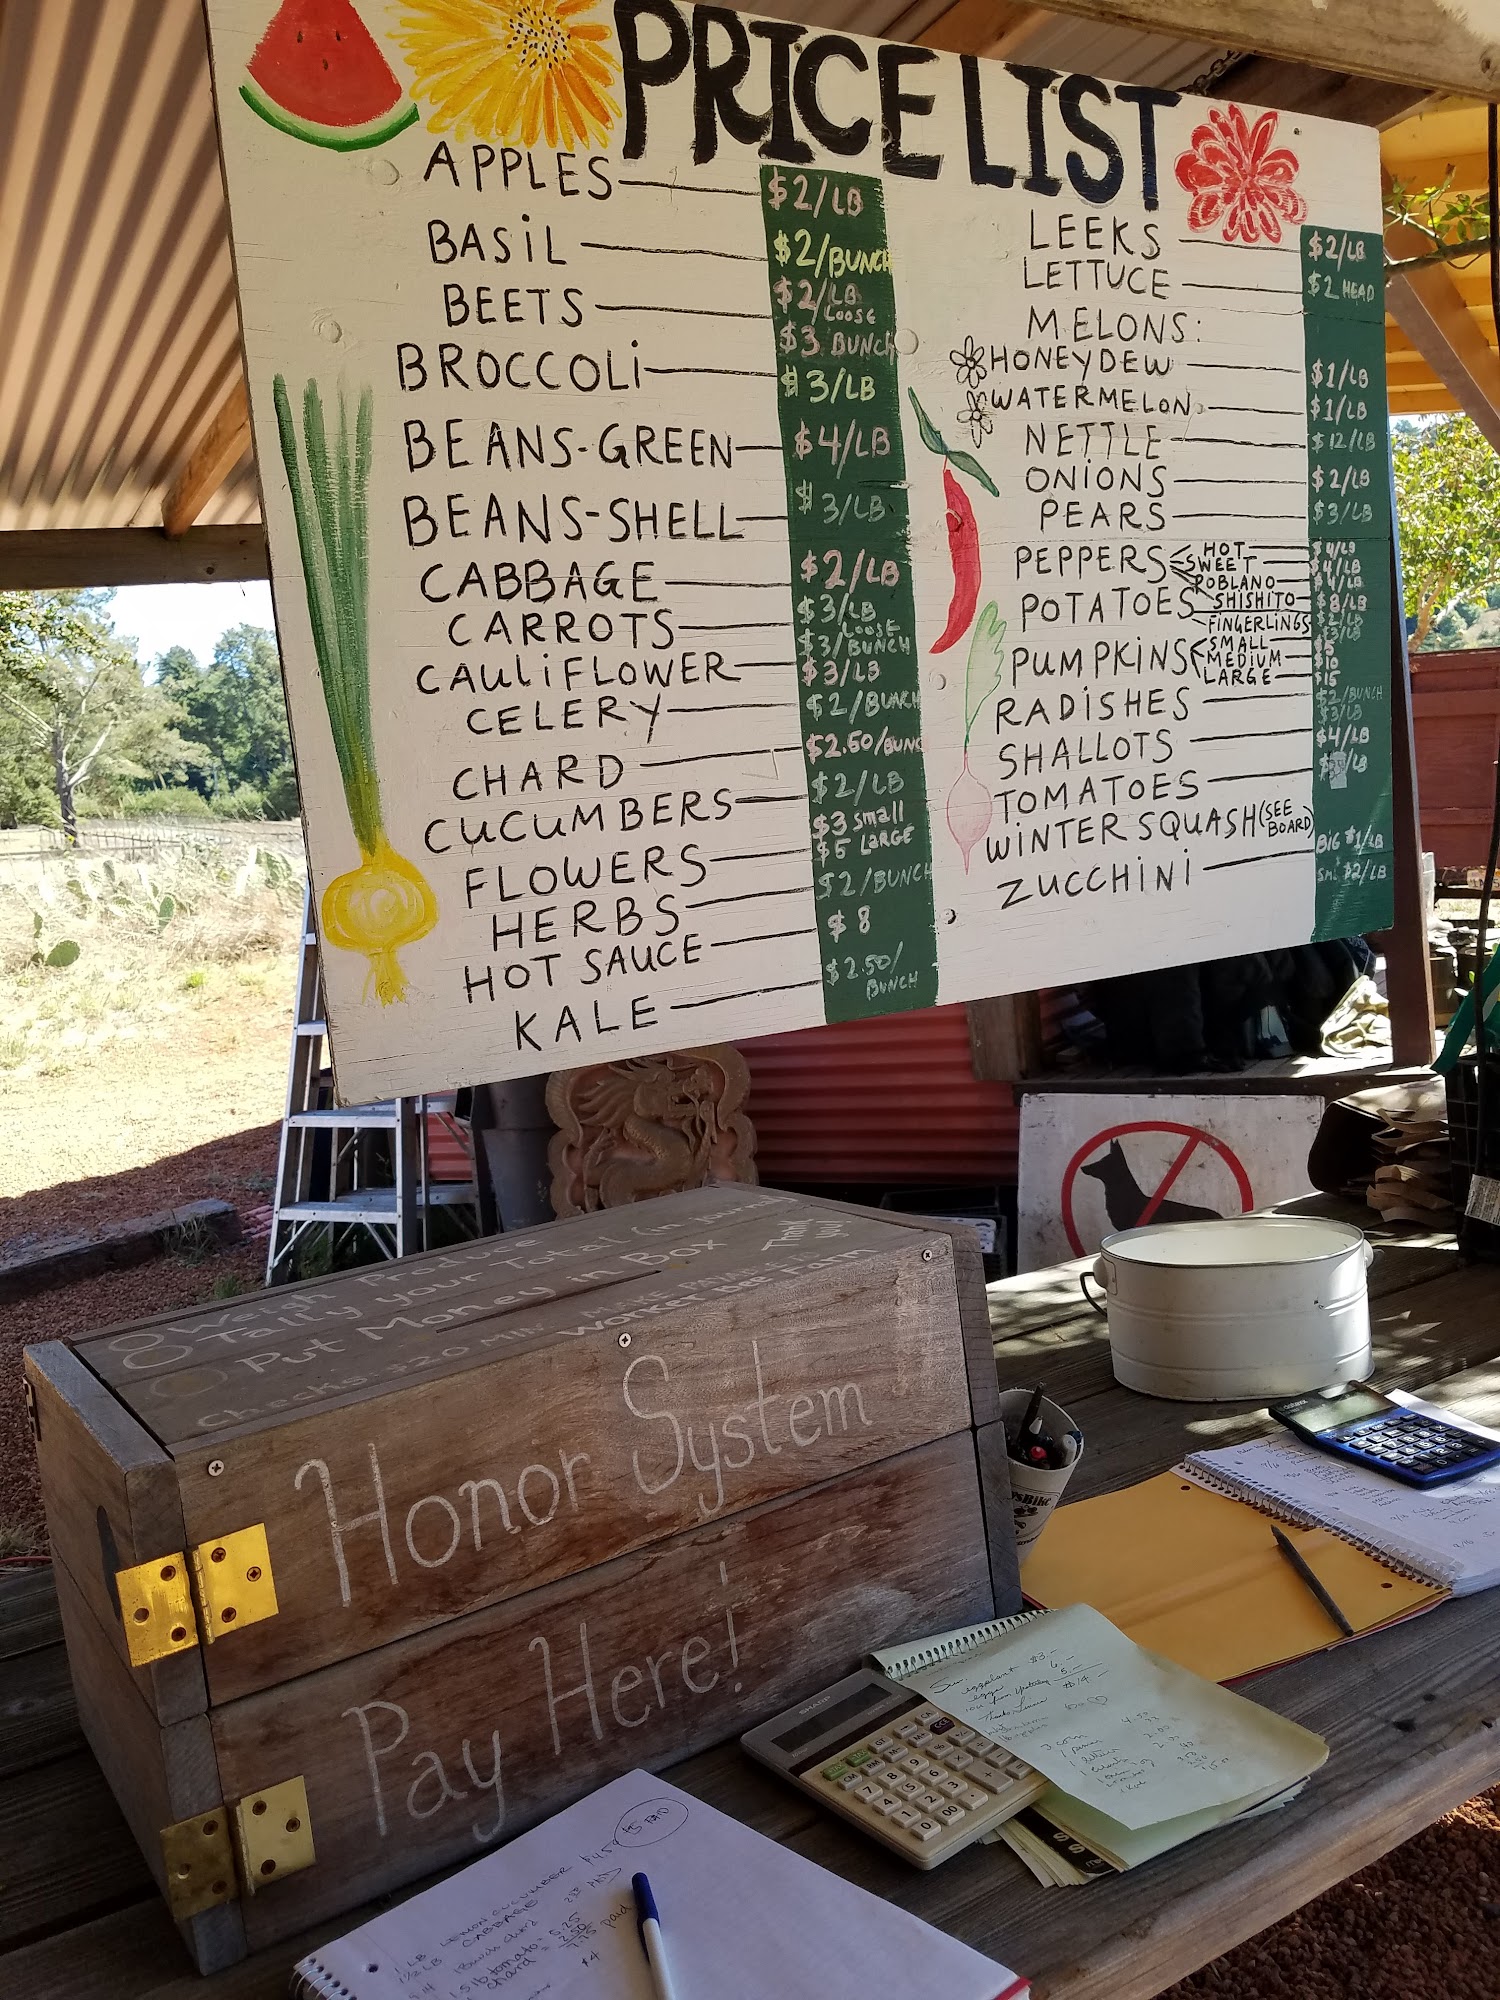 PRICE LIST
APPLES $2/LB
BASiL $2/BUNCH
BEETS $2/LB LOOSE
$3 BUNCH
BROCCOLi $3/LB
BEANS-GREEN $4/LB
BEANS-SHELL $3/LB
CABBAGE $2/LB
CARROTS $3/LB LOOSE
$3/BUNCH
CAULiFLOWER $3/LB
CELERY $2/BUNCH
CHARD $2.50/BUNC
CUCUMBERS $2/LB
FLOWERS $3 Small
$5 LARGE
HERBS $2/BUNCH
HOT SAUCE $8
KALE $2.50/
BUNCH
LEEKS $2/LB
LETTUCE $2 HEAD
MELONS:
HONEYDEW $1/LB
WATERMELON $1/LB
NETTLE $12/LB
ONiONS $2/LB
PEARS $3/LB
PEPPERS HOT $4/LB
SWEET $4/LB
POBLANO $4/LB
SHISHITO $8/LB
POTATOES $2/LB
FiNGERLiNGS $3/LB
PUMPKiNS SMALL $5
MEDIUM $10
LARGE $15
RADiSHES $2/BUNCH
$3/LB
SHALLOTS $4/LB
TOMATOES /LB
WiNTER SQUASH (SEE BOARD)
ZUCCHiNi BIG $1/LB
Sml $2/LB
Weigh Produce
Tally your Total (in
Put Money in Box
Thank you!
Checks: $20 MIN. MAKE
Worker Bee Farm
Honor System
Pay Here!
SHARP
eggplant $3.-
eggs 6.-
5.-
$14-
3 corn 4.50
1 LB LEMON CUCUMBER $4.50
CABBAGE
$5 PAID
1.5 lb tomato - 5.25
chard = 2.50
7.75 paid
$4